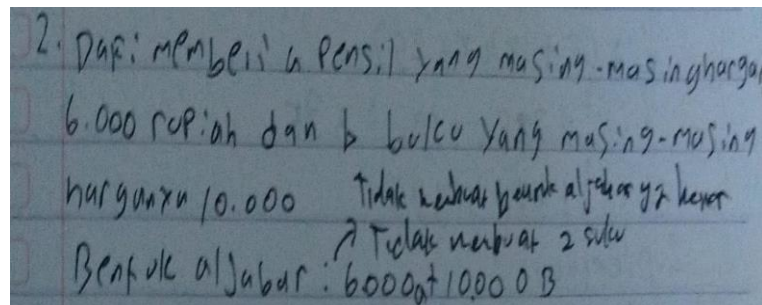 2. Dafi membeli a Pensil yang masing-masing harga
6.000 rupiah dan b buku yang masing-masing
harganya 10.000 Tidak membuat bentuk aljabar yg benar
Tidak membuat 2 suku
Bentuk aljabar : 6000a+10.000B